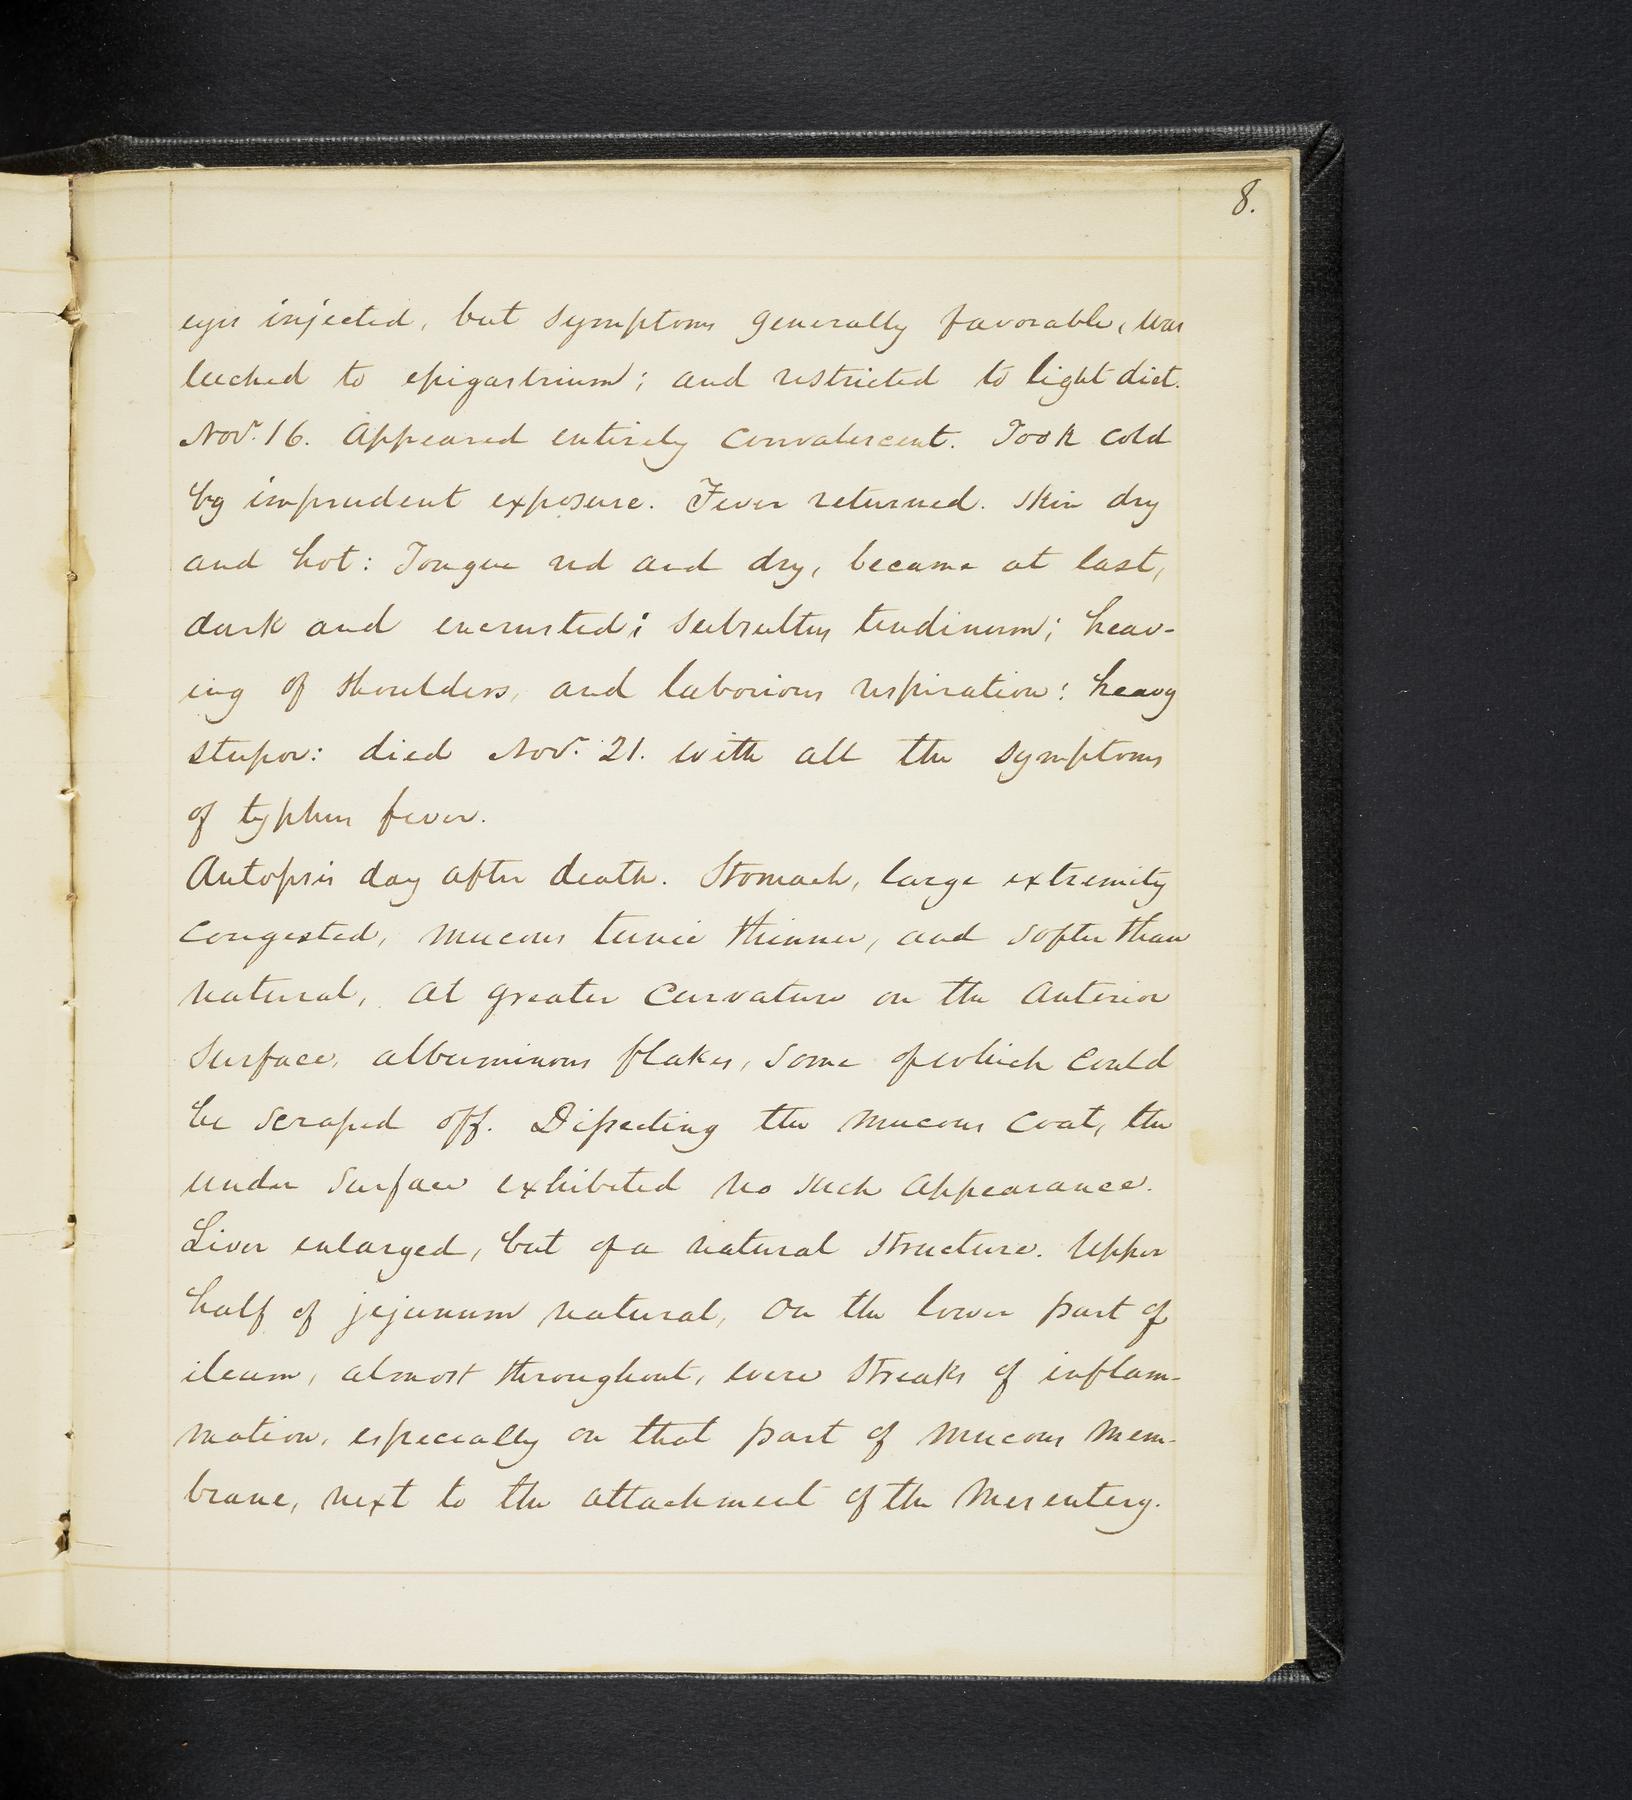 8.
eyes injected, but symptoms generally favorable, was
leeched to epigastrium; and restricted to light diet.
Nov. 16. Appeared entirely convalescent. Took cold
by imprudent exposure. Fever returned. Skin dry
and hot: Tongue red and dry, became at last,
dark and encrusted; subsultus tendinum; heav-
ing of shoulders, and laborious respiration: heavy
stupor: died Nov. 21. with all the symptoms
of typhus fever.
Autopsis day after death. Stomach, large extremity
congested, mucous tunic thinner, and softer than
natural, at greater curvature on the anterior
surface, albuminous flakes, some of which could
be scraped off. Dissecting the mucous coat, the
under surface exhibited no such appearance.
Liver enlarged, but of a natural structure. Upper
half of jejunum natural, on the lower part of
ileum, almost throughout, were streaks of inflam-
mation, especially on that part of mucous mem-
brane, next to the attachment of the mesentery.